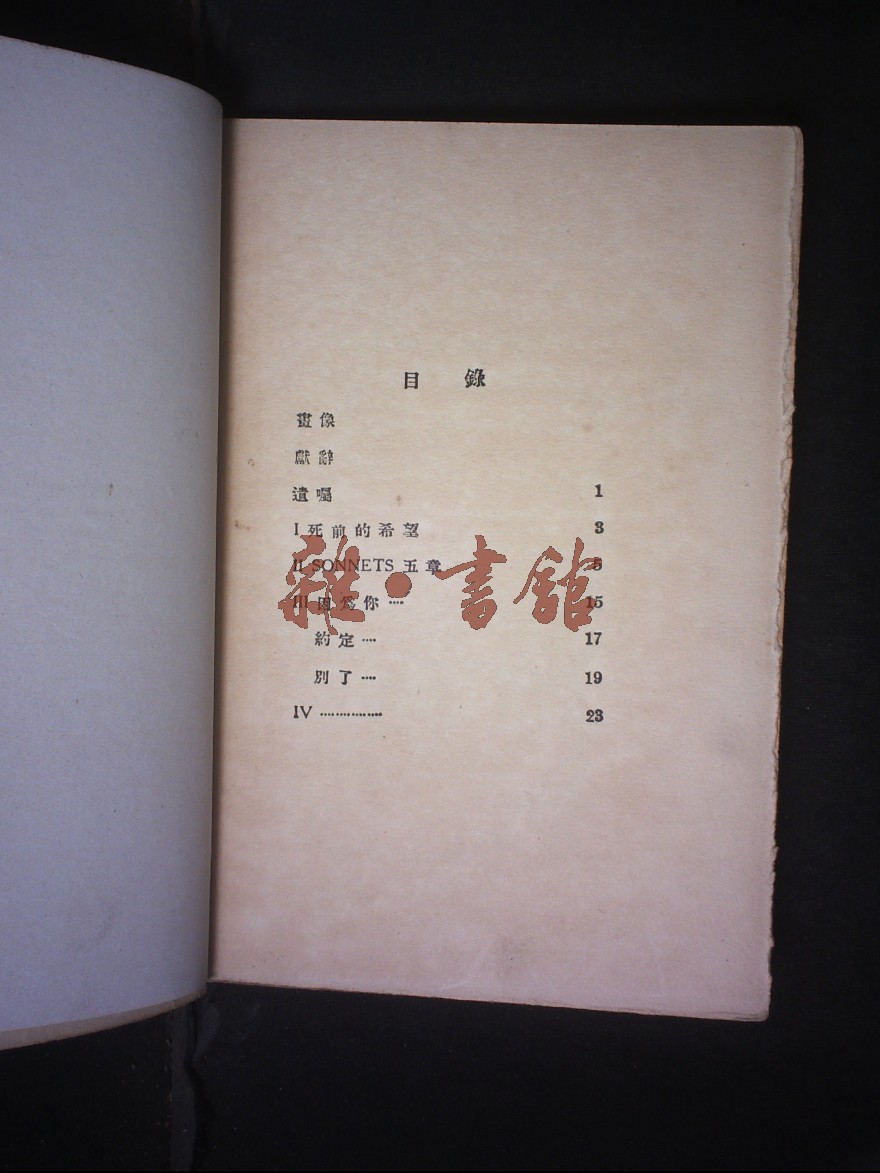 目錄
畫像
獻辭
遺囑 1
I 死前的希望 3
II SONNETS 五章 5
III 因爲你…. 15
約定…. 17
別了…. 19
IV ................ 23
雜·書館